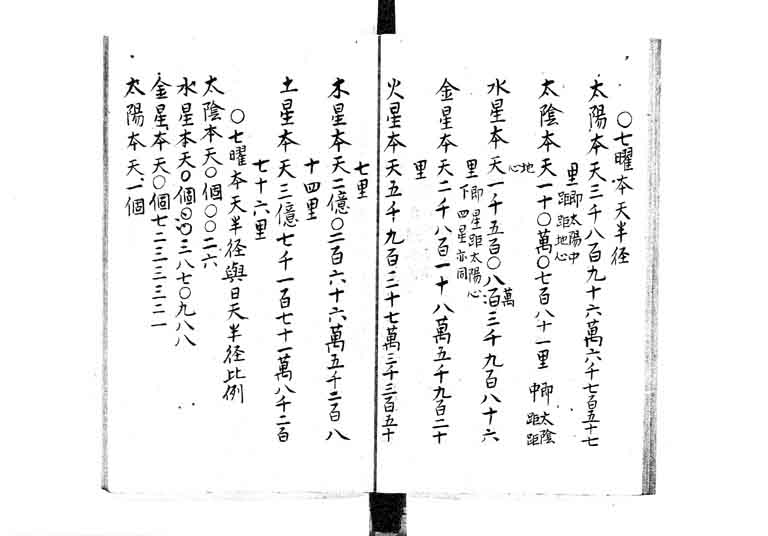 〇七曜本天半径
太陽本天三千八百九十六萬六千七百五十七
里即太陽中距距地心
太陰本天一十〇萬〇七百八十一里即太陰中距距
地心
水星本天一千五百〇八萬三千九百八十六
里即星距太陽心下四星亦同
金星本天二千八百一十八萬五千九百二十
里
火星本天五千九百三十七萬三千三百五十
七里
木星本天二億〇二百六十六萬五千二百八
十四里
土星本天三億七千一百七十一萬八千二百
七十六里
〇七曜本天半径與日天半径比例
太陰本天〇個〇〇二六
水星本天〇個三八七〇九八八
金星本天〇個七二三三三二一
太陽本天一個